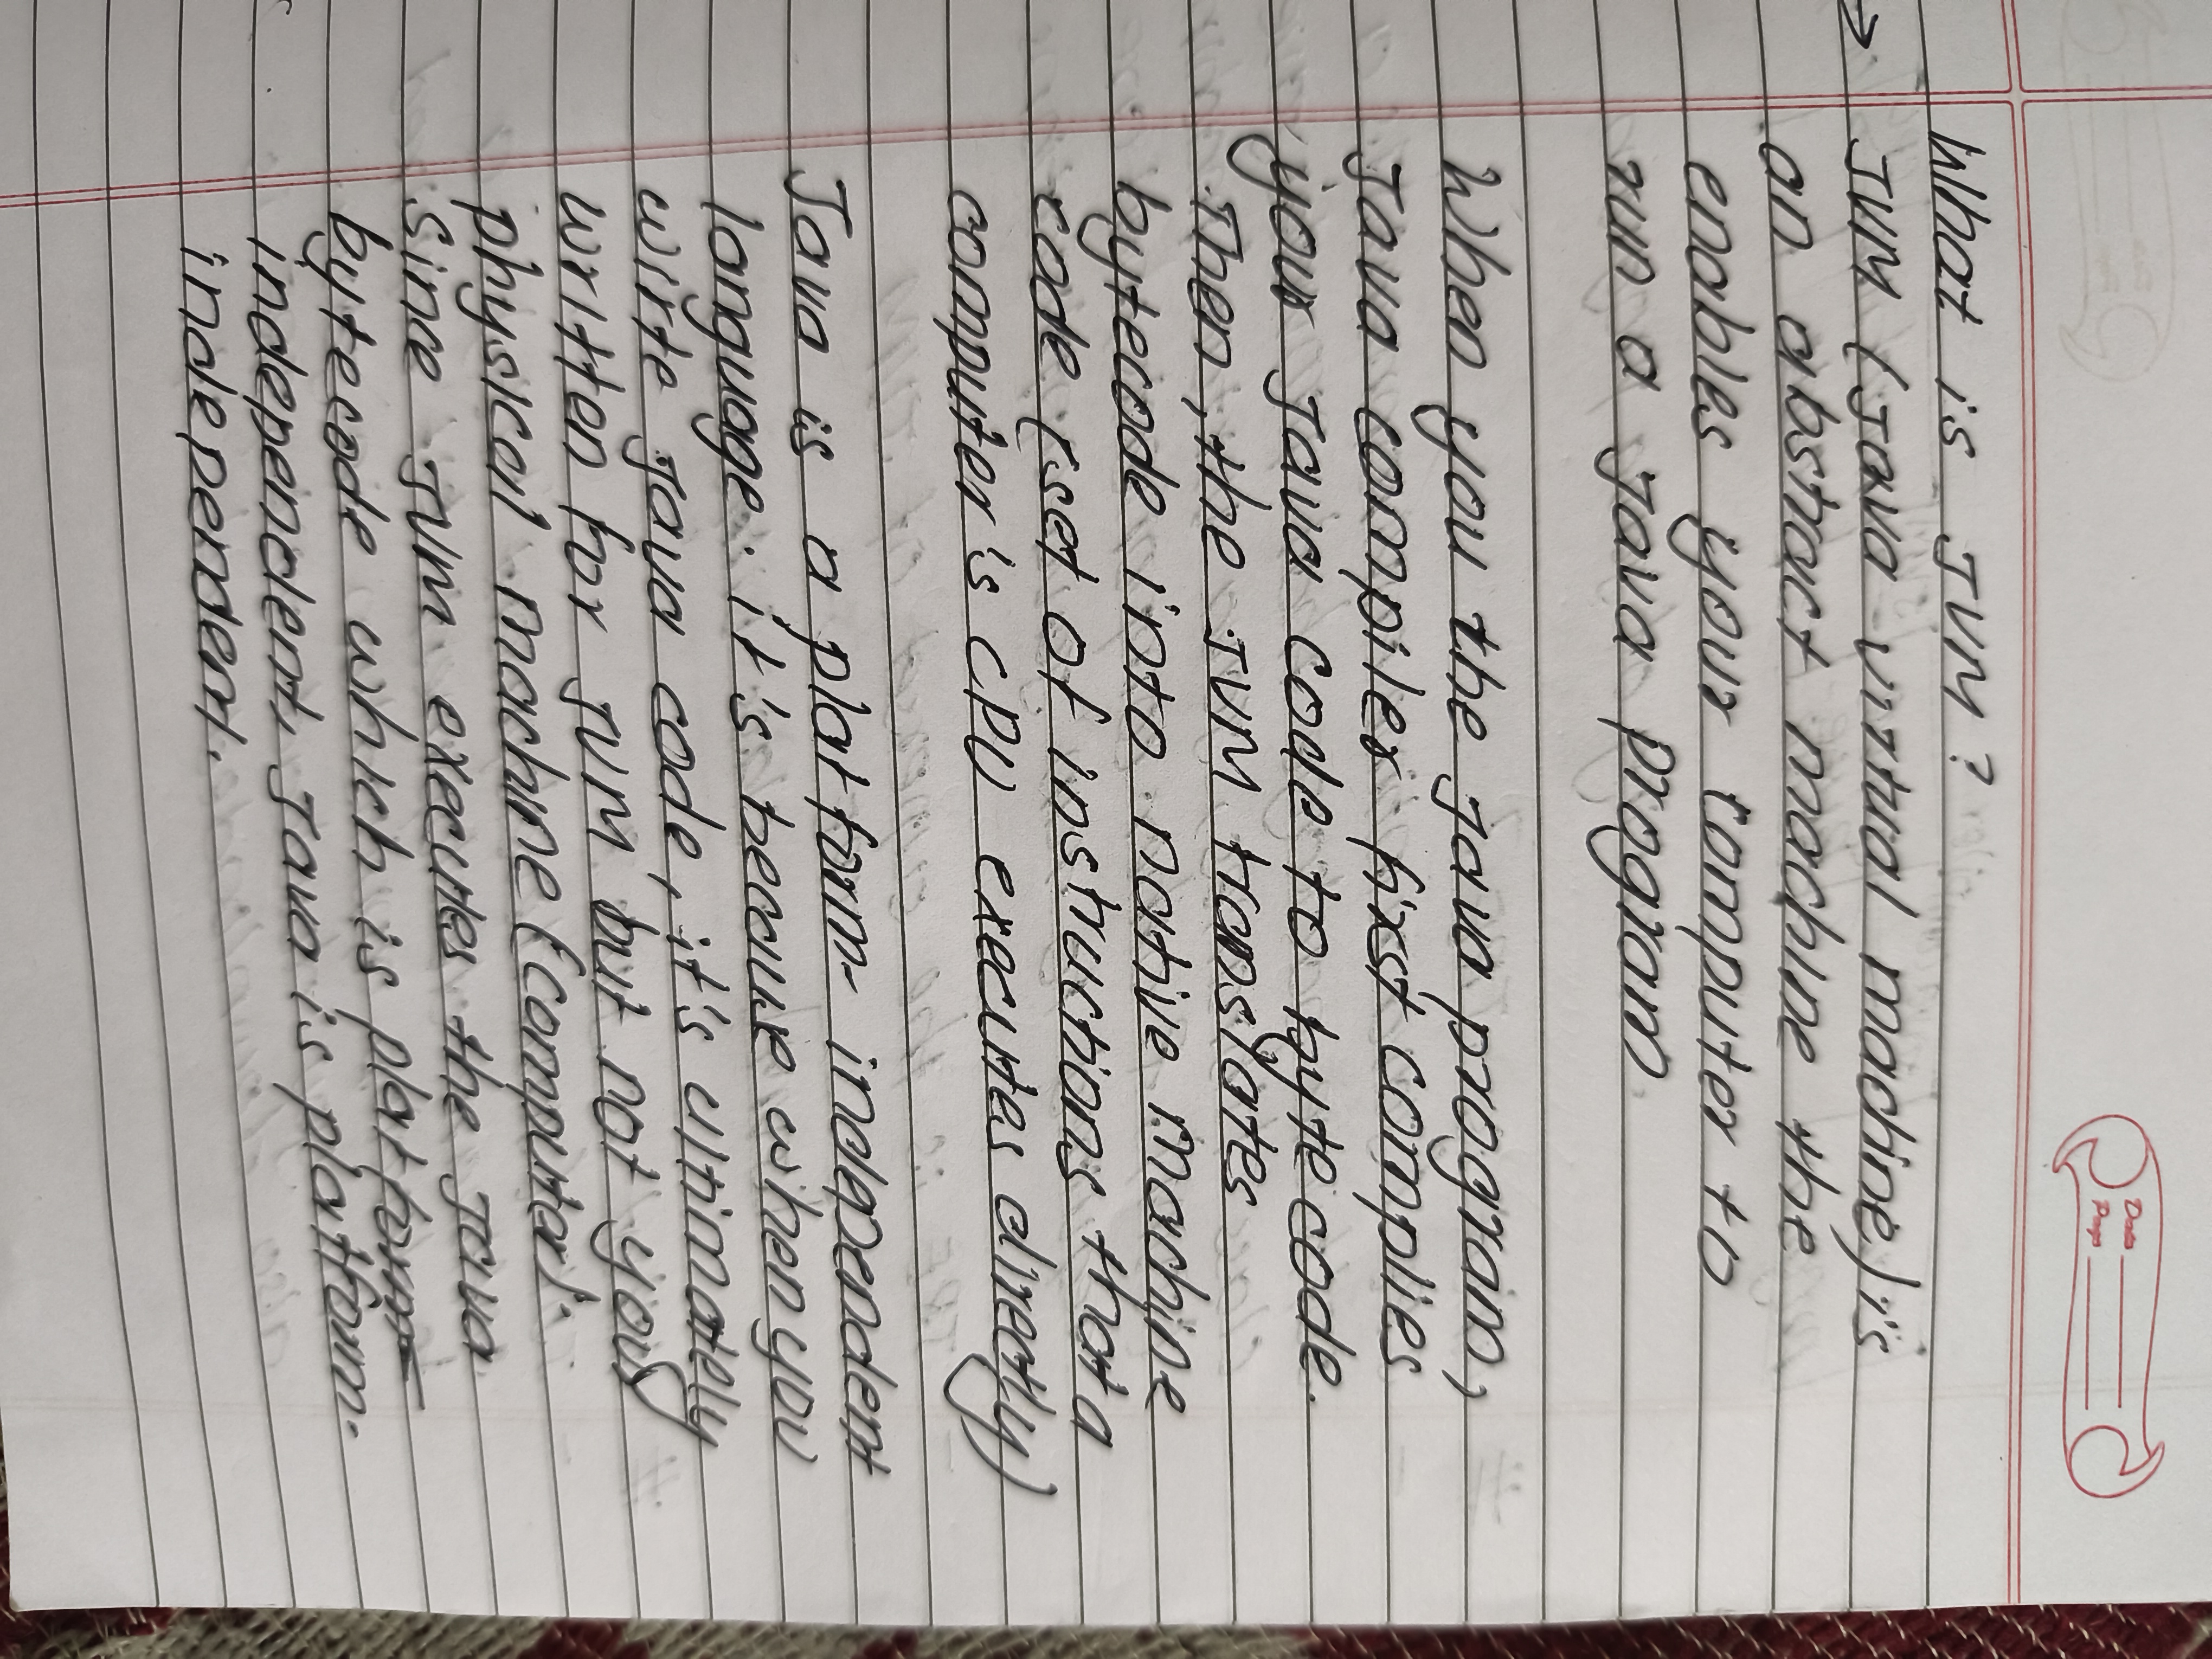 Date
Page
What is JVM?
→ JVM (Java virtual machine) is
an abstract machine the
enables your computer to
run a java program
When you the java program,
Java compiler first complies
your Java code to bytecode.
Then, the JVM translates
bytecode into native machine
code (set of instructions that a
computer's CPU executes directly)
Java is a platform-independent
language. It's becaure when you
write java code, it's ultimately
written for JVM but not your
physical machine (computer).
Since JVM executes the Java
bytecode which is platform
independent, Java is platform-
independent.